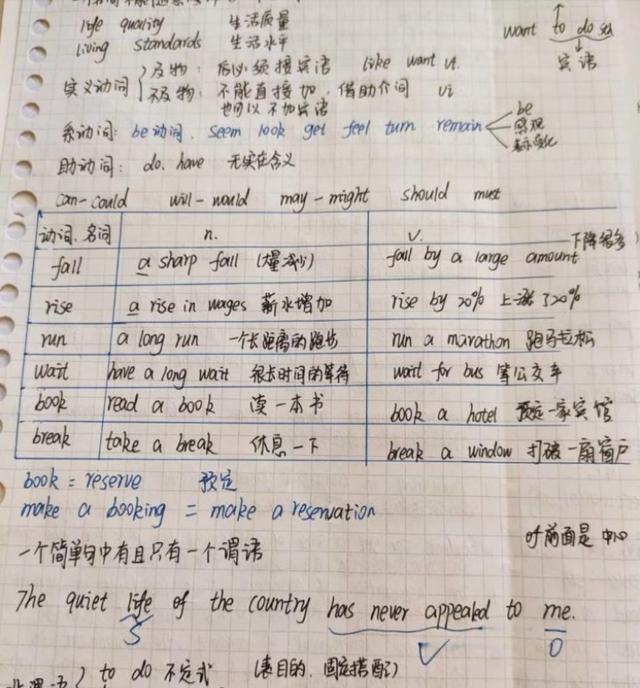 life quality 生活质量
living standards 生活水平
want to do sth
宾语
实义动词
及物: 后必须接宾语 like want vt.
不及物: 不能直接加, 借助介词 vi
也可以不加宾语
系动词: be动词. seem look get feel turn remain
be
感观
表示变化
助动词: do. have 无实在含义
can-could will-would may-might should must
动词.名词 n. v. 下降很多
fall a sharp fall (大量减少) fall by a large amount
rise a rise in wages 薪水增加 rise by 20% 上涨了20%
run a long run 一个长距离的跑步 run a marathon 跑马拉松
wait have a long wait 很长时间的等待 wait for bus 等公交车
book read a book 读一本书 book a hotel 预定一家宾馆
break take a break 休息一下 break a window 打破一扇窗户
book = reserve 预定
make a booking = make a reservation
一个简单句中有且只有一个谓语
of前面是中心
The quiet life of the country has never appealed to me.
S V O
to do 不定式 (表目的, 固定搭配)